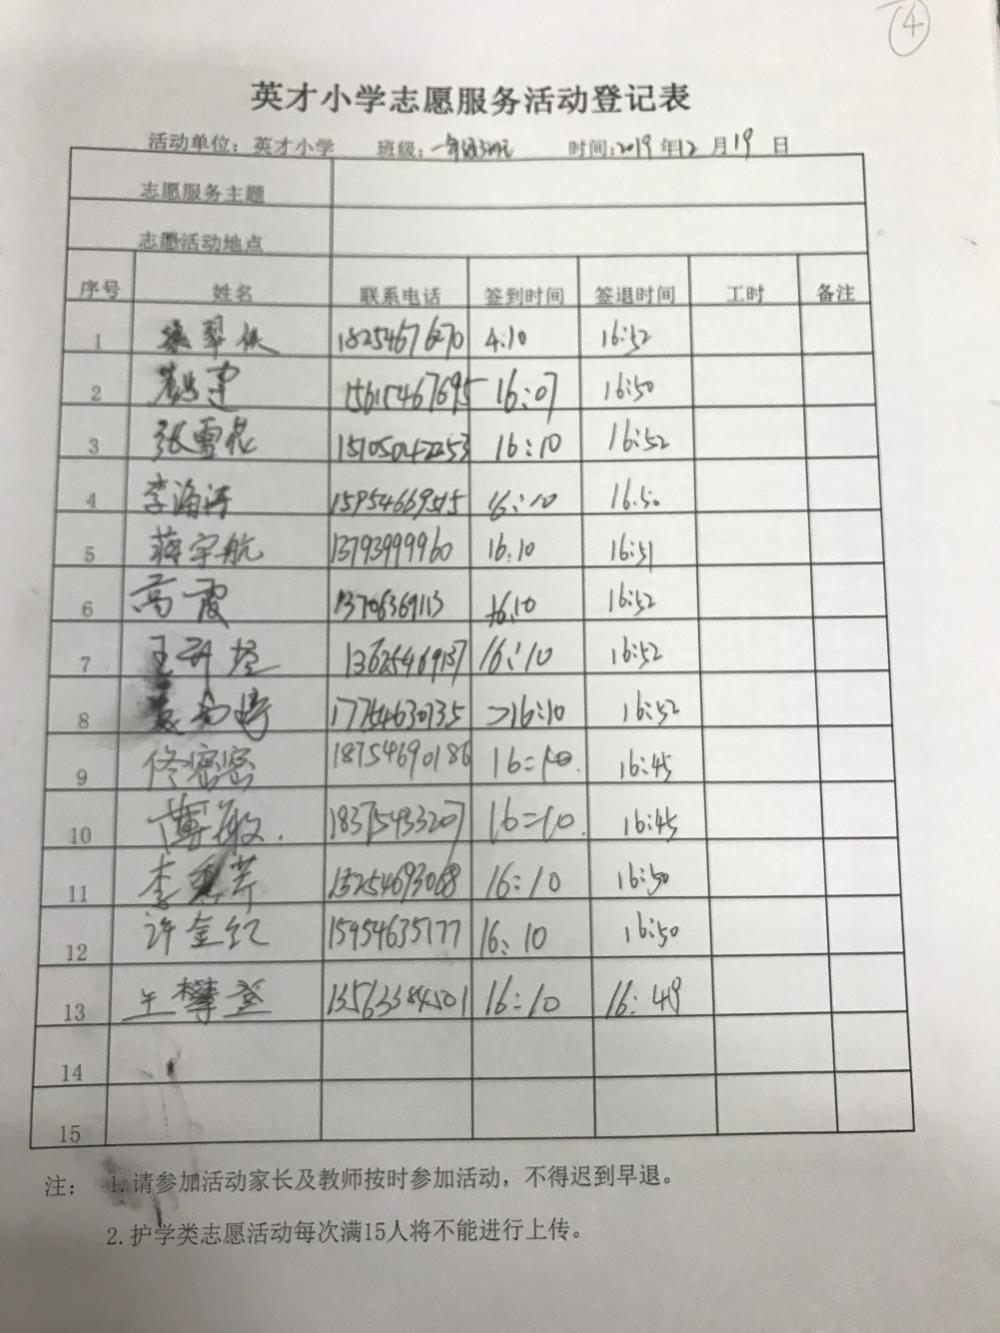 ④
英才小学志愿服务活动登记表
活动单位: 英才小学 班级: 时间: 2019年12月19日
志愿服务主题
志愿活动地点
序号 姓名 联系电话 签到时间 签退时间 工时 备注
1 18254676270 4:10 16:52
2 16:07 16:50
3 张雪花 16:10 16:52
4 李海涛 15954669515 16:10 16:50
5 蒋宇航 13793999960 16:10 16:51
6 高霞 13706369113 16:10 16:52
7 13625469137 16:10 16:52
8 17754630735 16:10 16:52
9 佟密密 18754690186 16:10 16:45
10 薄敏 18375433207 16=10 16:45
11 13254693068 16:10 16:50
12 许金红 15954635177 16:10 16:50
13 王攀登 13563384501 16:10 16:49
14
15
注: 1.请参加活动家长及教师按时参加活动，不得迟到早退。
2.护学类志愿活动每次满15人将不能进行上传。